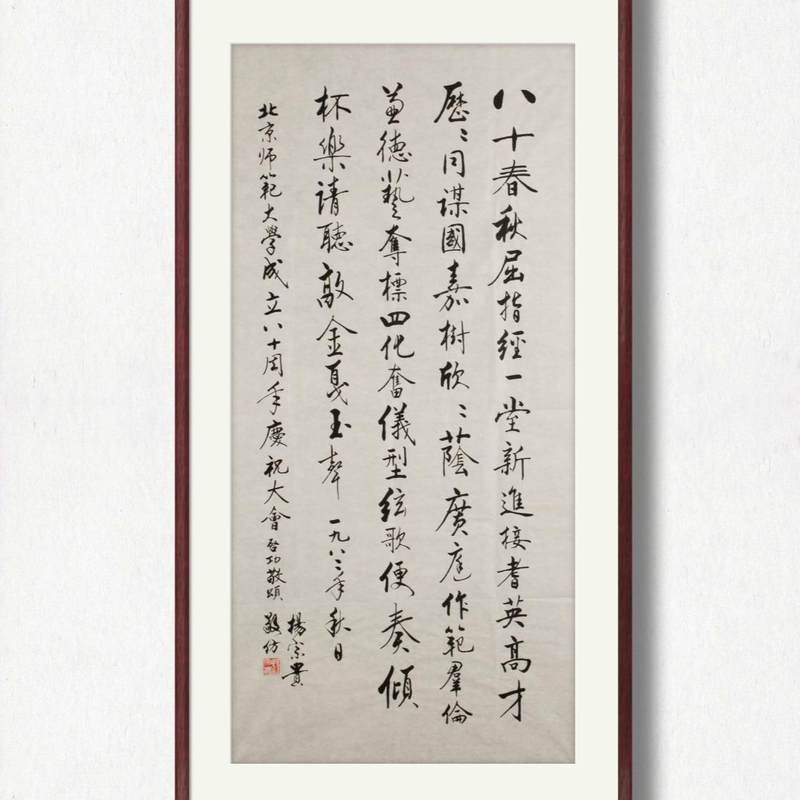 八十春秋屈指經一堂新進接耆英高才
歷〻同謀國嘉樹欣〻蔭廣庭作範羣倫
兼德藝奪標四化奮儀型弦歌便奏傾
杯樂請聽敲金戛玉聲 一九八二年秋日
北京师範大學成立八十周年慶祝大會 启功敬頌
楊宗貴
敬仿